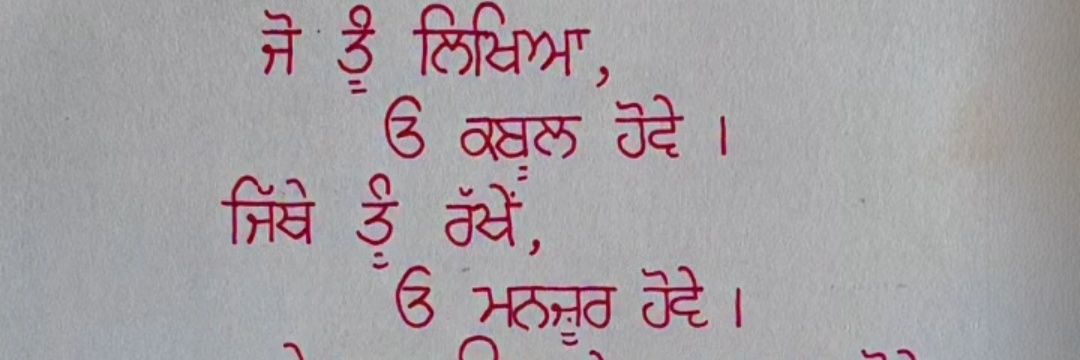 ਜੋ ਤੂੰ ਲਿਖਿਆ,
ਓ ਕਬੂਲ ਹੋਵੇ ।
ਜਿੱਥੇ ਤੂੰ ਰੱਖੇਂ,
ਓ ਮਨਜ਼ੂਰ ਹੋਵੇ ।